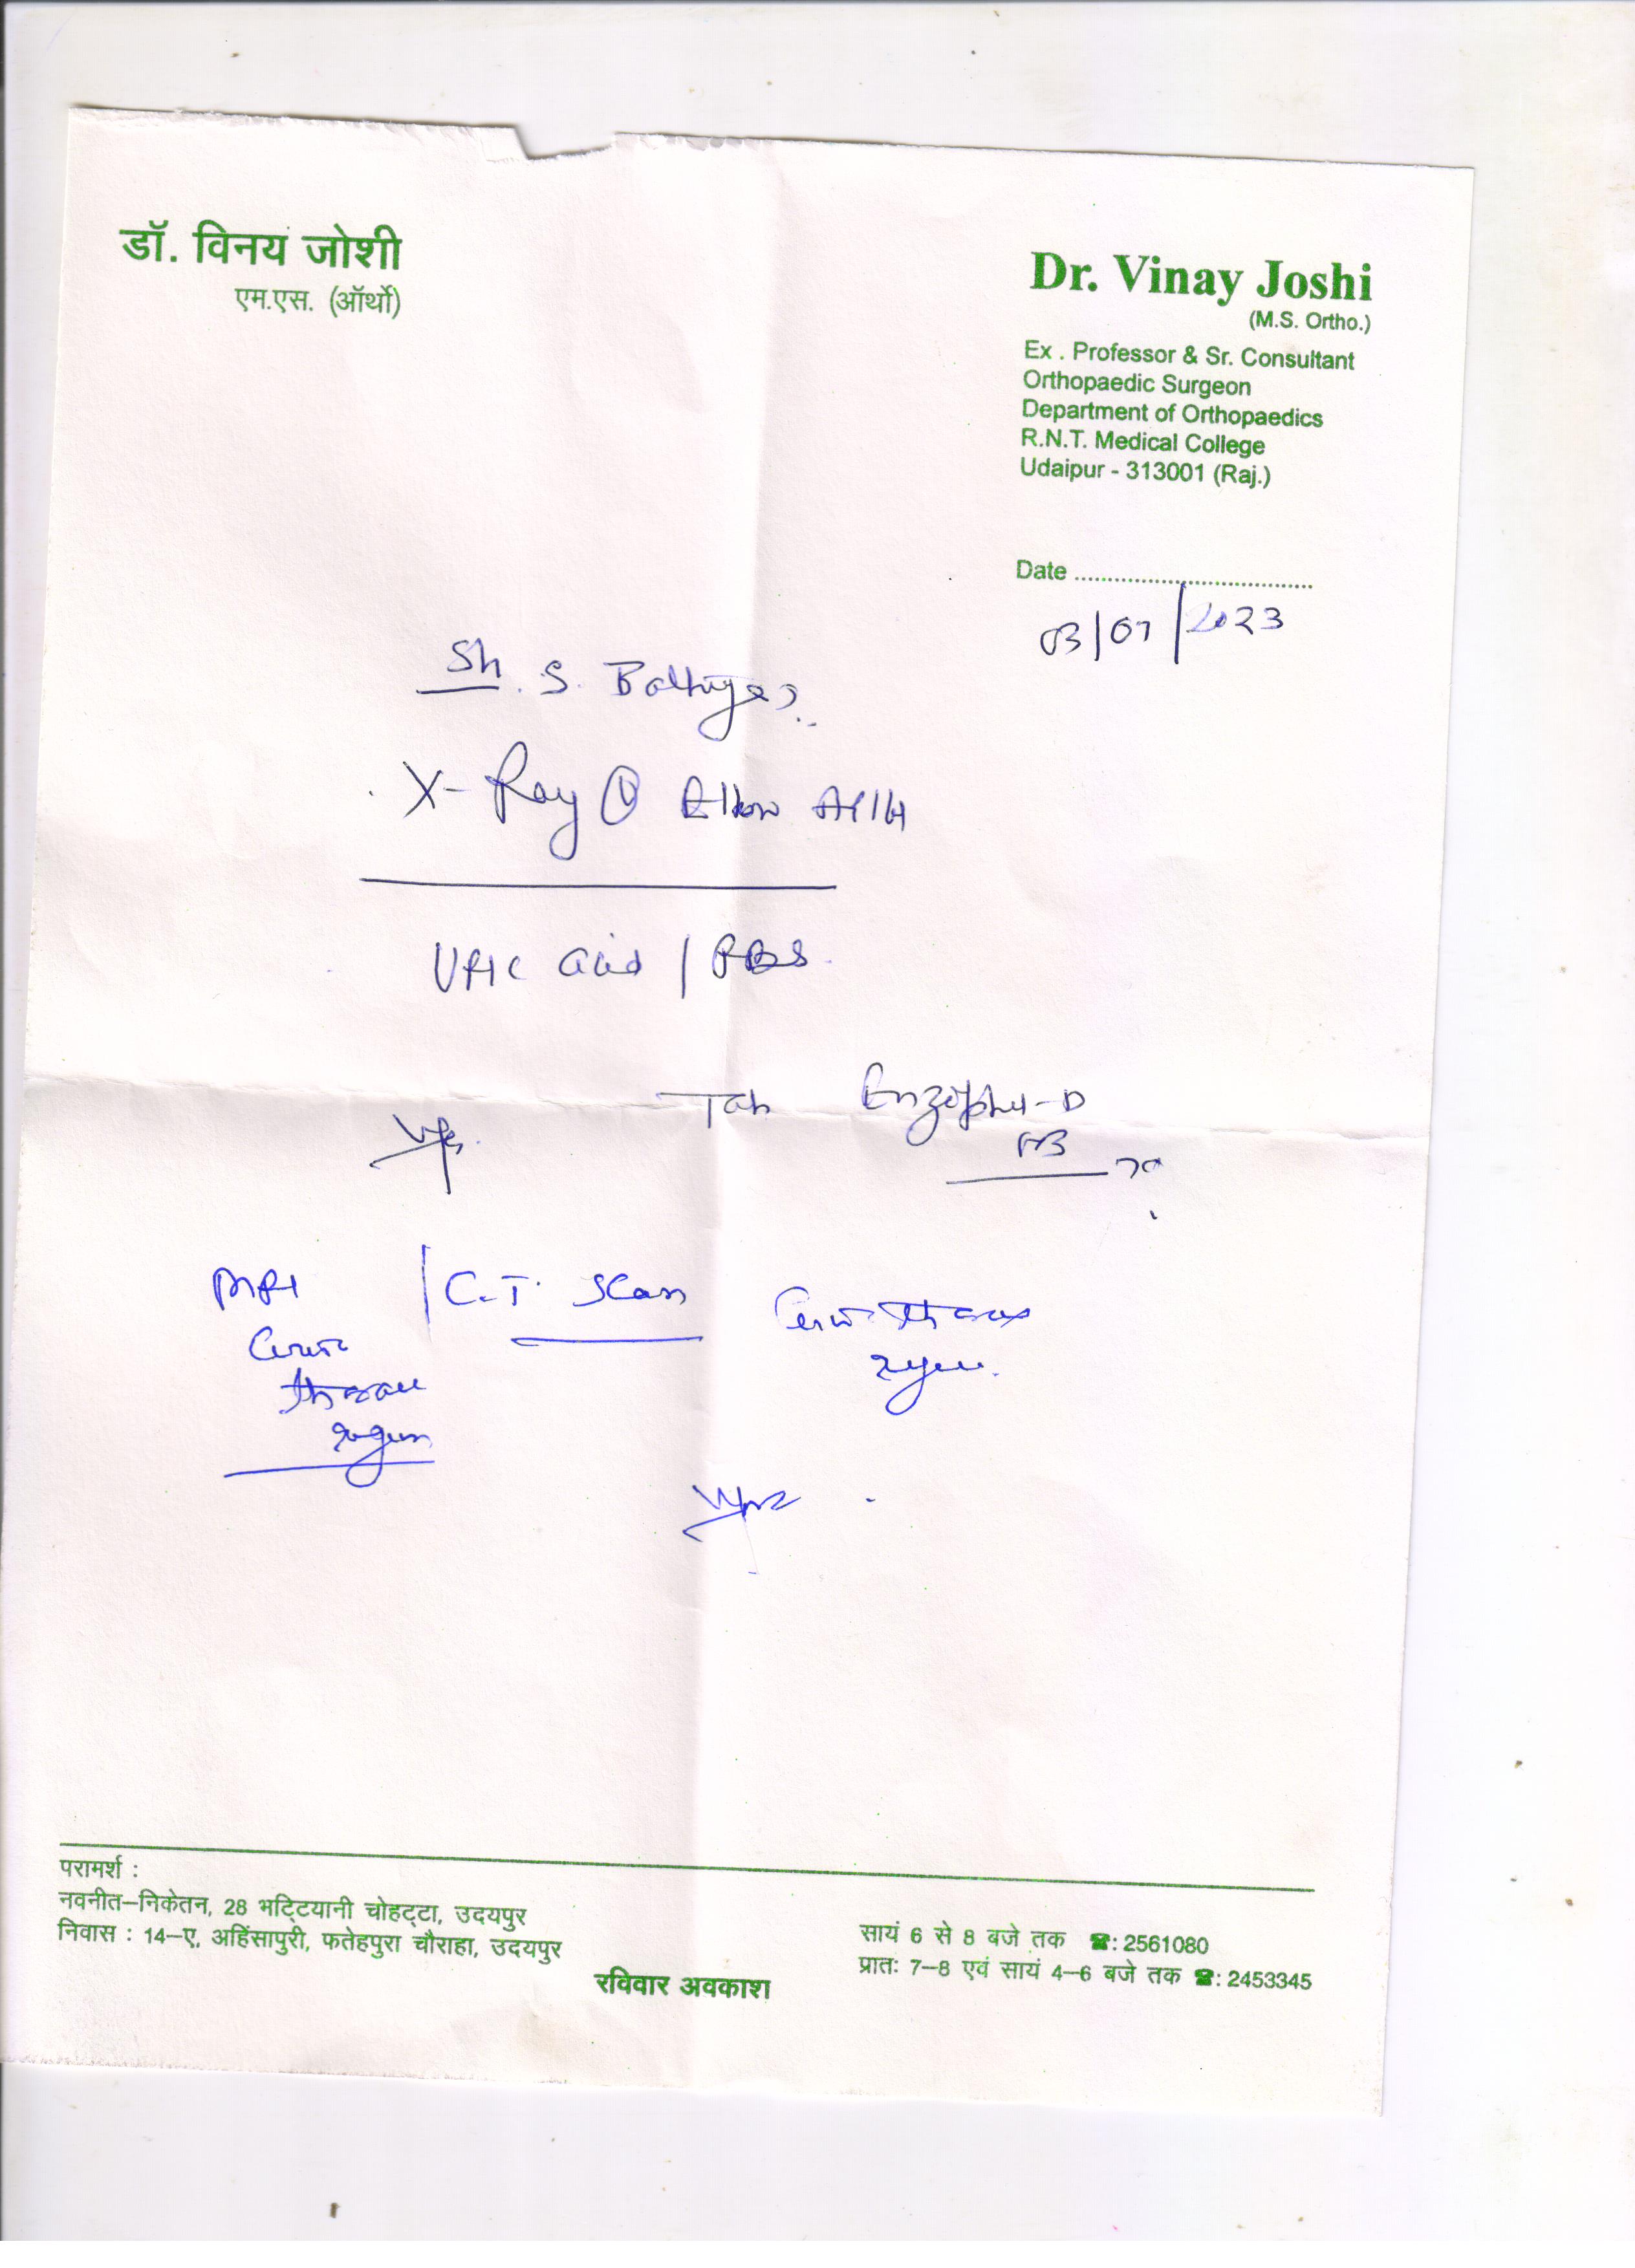 डॉ. विनय जोशी
एम.एस. (ऑर्थो)
Dr. Vinay Joshi
(M.S. Ortho.)
Ex . Professor & Sr. Consultant
Orthopaedic Surgeon
Department of Orthopaedics
R.N.T. Medical College
Udaipur - 313001 (Raj.)
Date
03/07/2023
Sh. S.
X-Ray Elbow AP/Lat
Uric acid / RBS
Tab
MRI / C.T. Scan
परामर्श :
नवनीत-निकेतन, 28 भट्टियानी चोहट्टा, उदयपुर
सायं 6 से 8 बजे तक ☎: 2561080
निवास : 14-ए, अहिंसापुरी, फतेहपुरा चौराहा, उदयपुर
प्रातः 7-8 एवं सायं 4-6 बजे तक ☎: 2453345
रविवार अवकाश